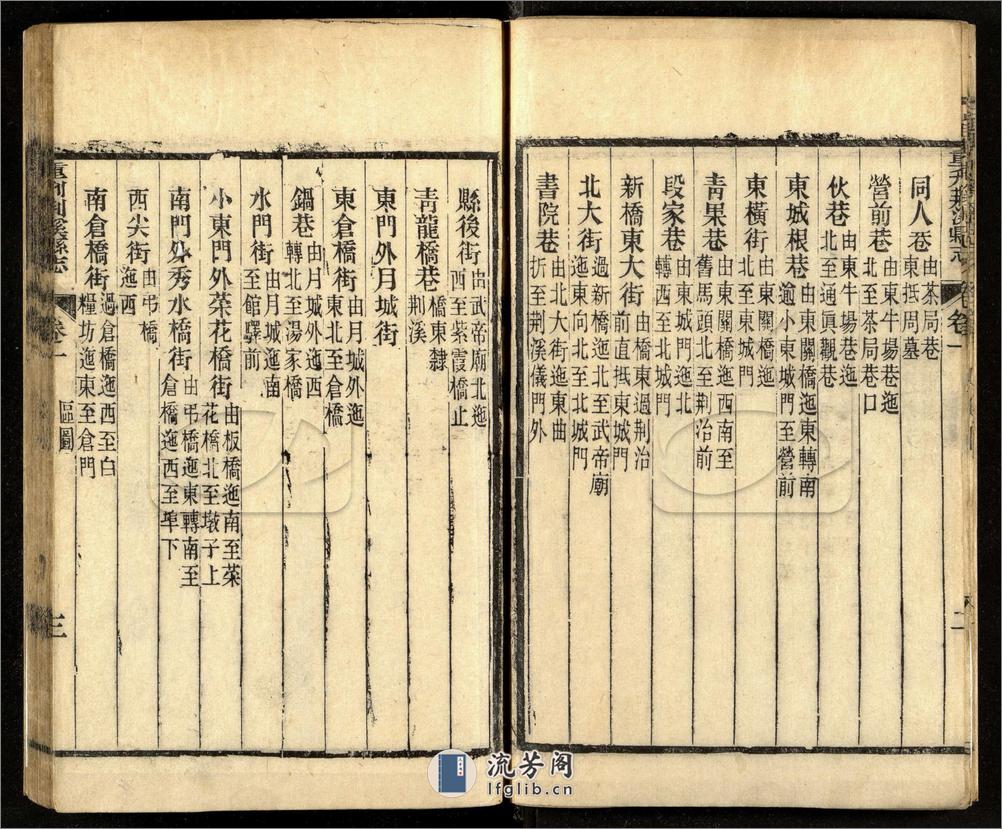 重刊荊溪縣志
卷一
二
同人巷 由茶局巷東抵周墓
營前巷 由東牛場巷迤北至茶局巷口
伙巷 由東牛場巷迤北至通眞觀巷
東城根巷 由東關橋迤東轉南逾小東城門至營前
東橫街 由東關橋迤北至東城門
青果巷 由東關橋西南至舊馬頭北至荆治前
段家巷 由東城門迤北轉西至北城門
新橋東大街 由橋東過荆治前直抵東城門
北大街 過新橋迤北至武帝廟迤東向北至北城門
書院巷 由北大街迤東曲折至荆溪儀門外
縣後街 由武帝廟北迤西至紫霞橋止
青龍橋巷 橋東隸荆溪
東門外月城街
東倉橋街 由月城外迤東北至倉橋
鍋巷 由月城外迤西轉北至湯家橋
水門街 由月城迤南至館驛前
小東門外菜花橋街 由板橋迤南至菜花橋北至墩子上
南門外秀水橋街 由弔橋迤東轉南至倉橋迤西至埠下
西尖街 由弔橋迤西
南倉橋街 過倉橋迤西至白糧坊迤東至倉門
重刊荊溪縣志
卷一
區圖
三
流芳阁
lfglib.cn